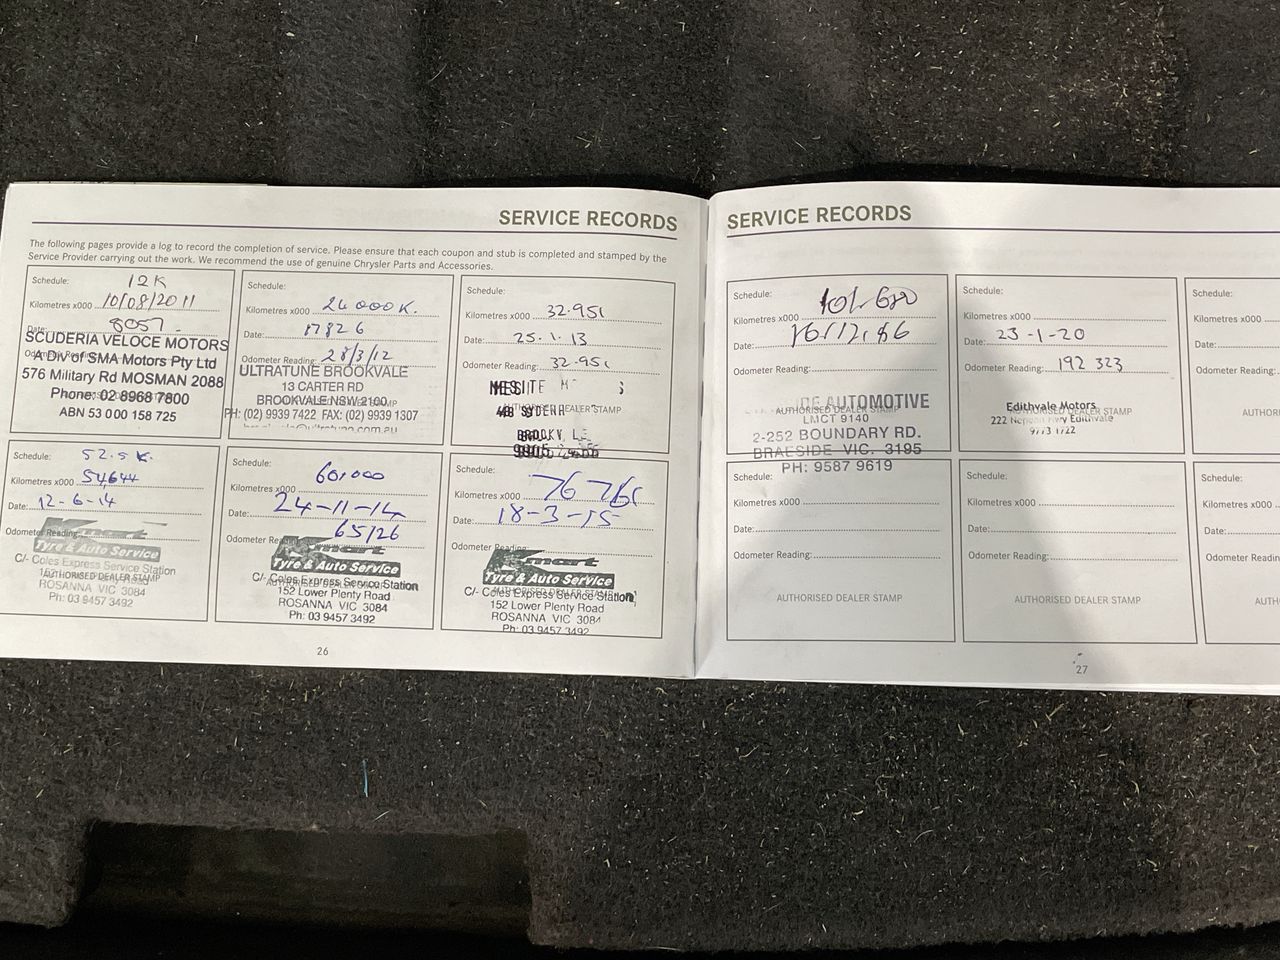 SERVICE RECORDS
The following pages provide a log to record the completion of service. Please ensure that each coupon and stub is completed and stamped by the
Service Provider carrying out the work. We recommend the use of genuine Chrysler Parts and Accessories.
Schedule: 12K
Kilometres x000 10/08/2011
Date: 8057
SCUDERIA VELOCE MOTORS
A Div of SMA Motors Pty Ltd
576 Military Rd MOSMAN 2088
Phone: 02 8968 7800
ABN 53 000 158 725
Schedule:
Kilometres x000 24000K.
Date: 17826
Odometer Reading: 28/3/12
ULTRATUNE BROOKVALE
13 CARTER RD
BROOKVALE NSW 2100
PH: (02) 9939 7422 FAX: (02) 9939 1307
Schedule:
Kilometres x000 32.951
Date: 25.1.13
Odometer Reading: 32.951
AUTHORISED DEALER STAMP
Schedule: 52.5K.
Kilometres x000 54644
Date: 12-6-14
Odometer Reading:
Kmart
Tyre & Auto Service
C/- Coles Express Service Station
AUTHORISED DEALER STAMP
ROSANNA VIC 3084
Ph: 03 9457 3492
Schedule: 60,000
Kilometres x000
Date: 24-11-14
65126
Kmart
Tyre & Auto Service
C/- Coles Express Service Station
152 Lower Plenty Road
ROSANNA VIC 3084
Ph: 03 9457 3492
Schedule:
Kilometres x000 76761
Date: 18-3-15
Odometer Reading:
Kmart
Tyre & Auto Service
C/- Coles Express Service Station
152 Lower Plenty Road
ROSANNA VIC 3084
Ph: 03 9457 3492
26
SERVICE RECORDS
Schedule:
Kilometres x000
Date:
Odometer Reading:
AUTOMOTIVE
AUTHORISED DEALER STAMP
LMCT 9140
2-252 BOUNDARY RD.
BRAESIDE VIC. 3195
PH: 9587 9619
Schedule:
Kilometres x000
Date: 23-1-20
Odometer Reading: 192 323
Edithvale Motors
AUTHORISED DEALER STAMP
222 Nepean Hwy Edithvale
9773 1722
Schedule:
Kilometres x000
Date:
Odometer Reading:
Schedule:
Kilometres x000
Date:
Odometer Reading:
AUTHORISED DEALER STAMP
Schedule:
Kilometres x000
Date:
Odometer Reading:
AUTHORISED DEALER STAMP
Schedule:
Kilometres x000
Date:
27